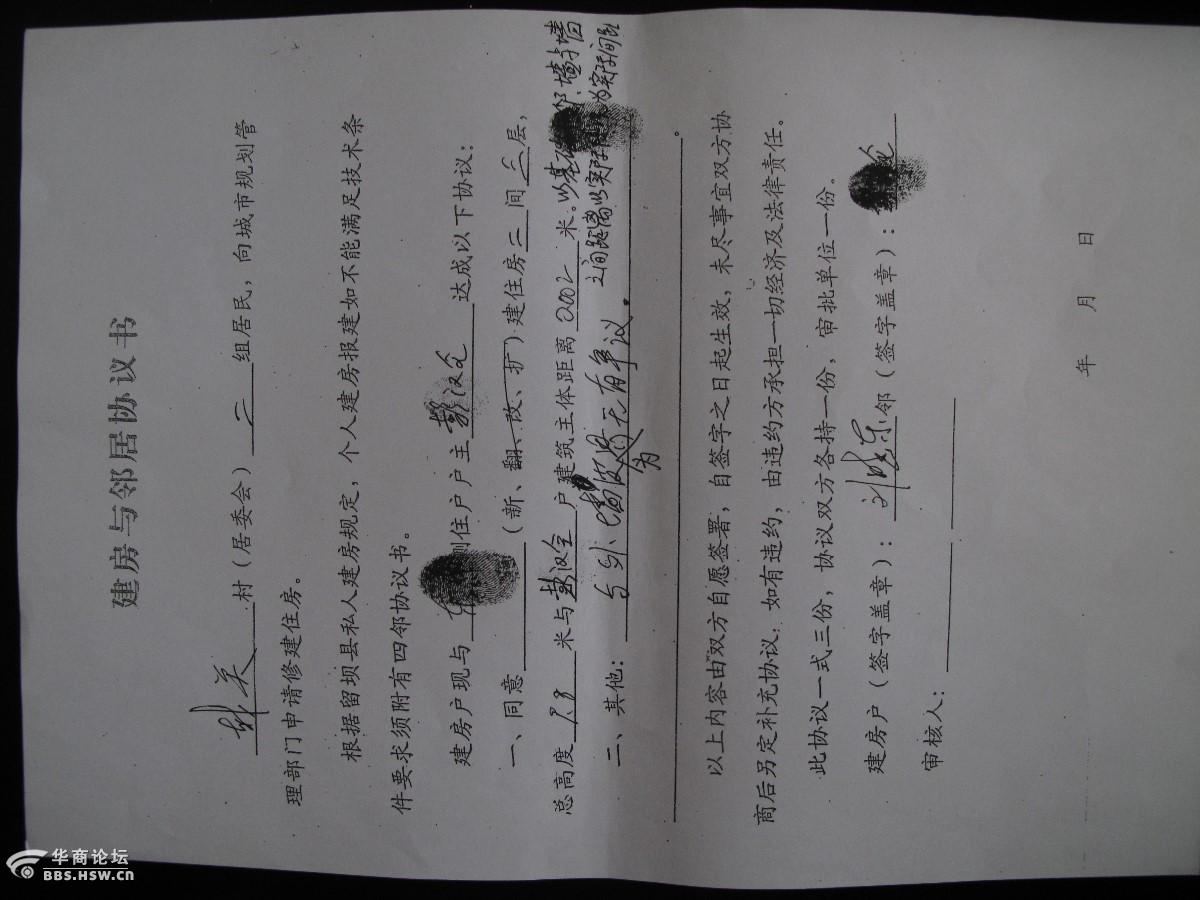 建房与邻居协议书
村（居委会）二组居民，向城市规划管
理部门申请修建住房。
根据留坝县私人建房规定，个人建房报建如不能满足技术条
件要求须附有四邻协议书。
建房户现与 侧住户户主彭汉仓 达成以下协议：
一、同意 （新、翻、改、扩）建住房三间三层，
总高度 米与彭汉仓户建筑主体距离 米。以基 墙与墙
之间距离以实际 为实际间距
二、其他： 与外墙 为 无有争议。
以上内容由双方自愿签署，自签字之日起生效，未尽事宜双方协
商后另定补充协议；如有违约，由违约方承担一切经济及法律责任。
此协议一式三份，协议双方各持一份，审批单位一份。
建房户（签字盖章）： 邻（签字盖章）： 仓
审核人：
年 月 日
华商论坛
BBS.HSW.CN